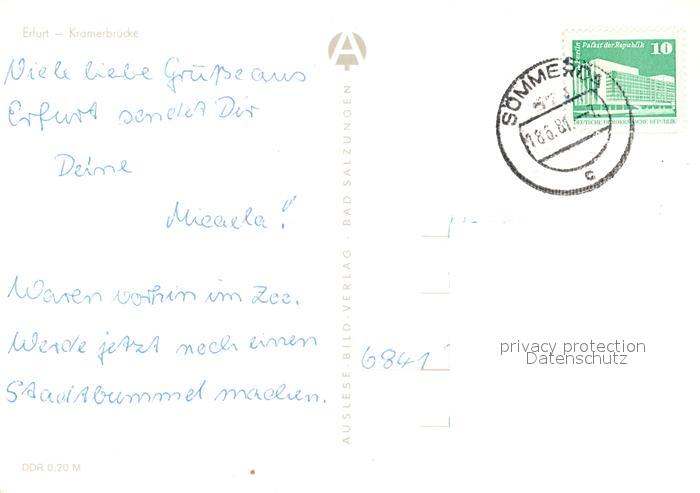 Erfurt – Krämerbrücke
Viele liebe Grüße aus
Erfurt sendet Dir
Deine
Micaela!
Waren vorhin im Zoo.
Werde jetzt noch einen
Stadtbummel machen.
DDR 0,20 M
AUSLESE BILD-VERLAG · BAD SALZUNGEN
Berlin Palast der Republik 10
DEUTSCHE DEMOKRATISCHE REPUBLIK
SÖMMERDA
18.6.81
c
6841
privacy protection
Datenschutz